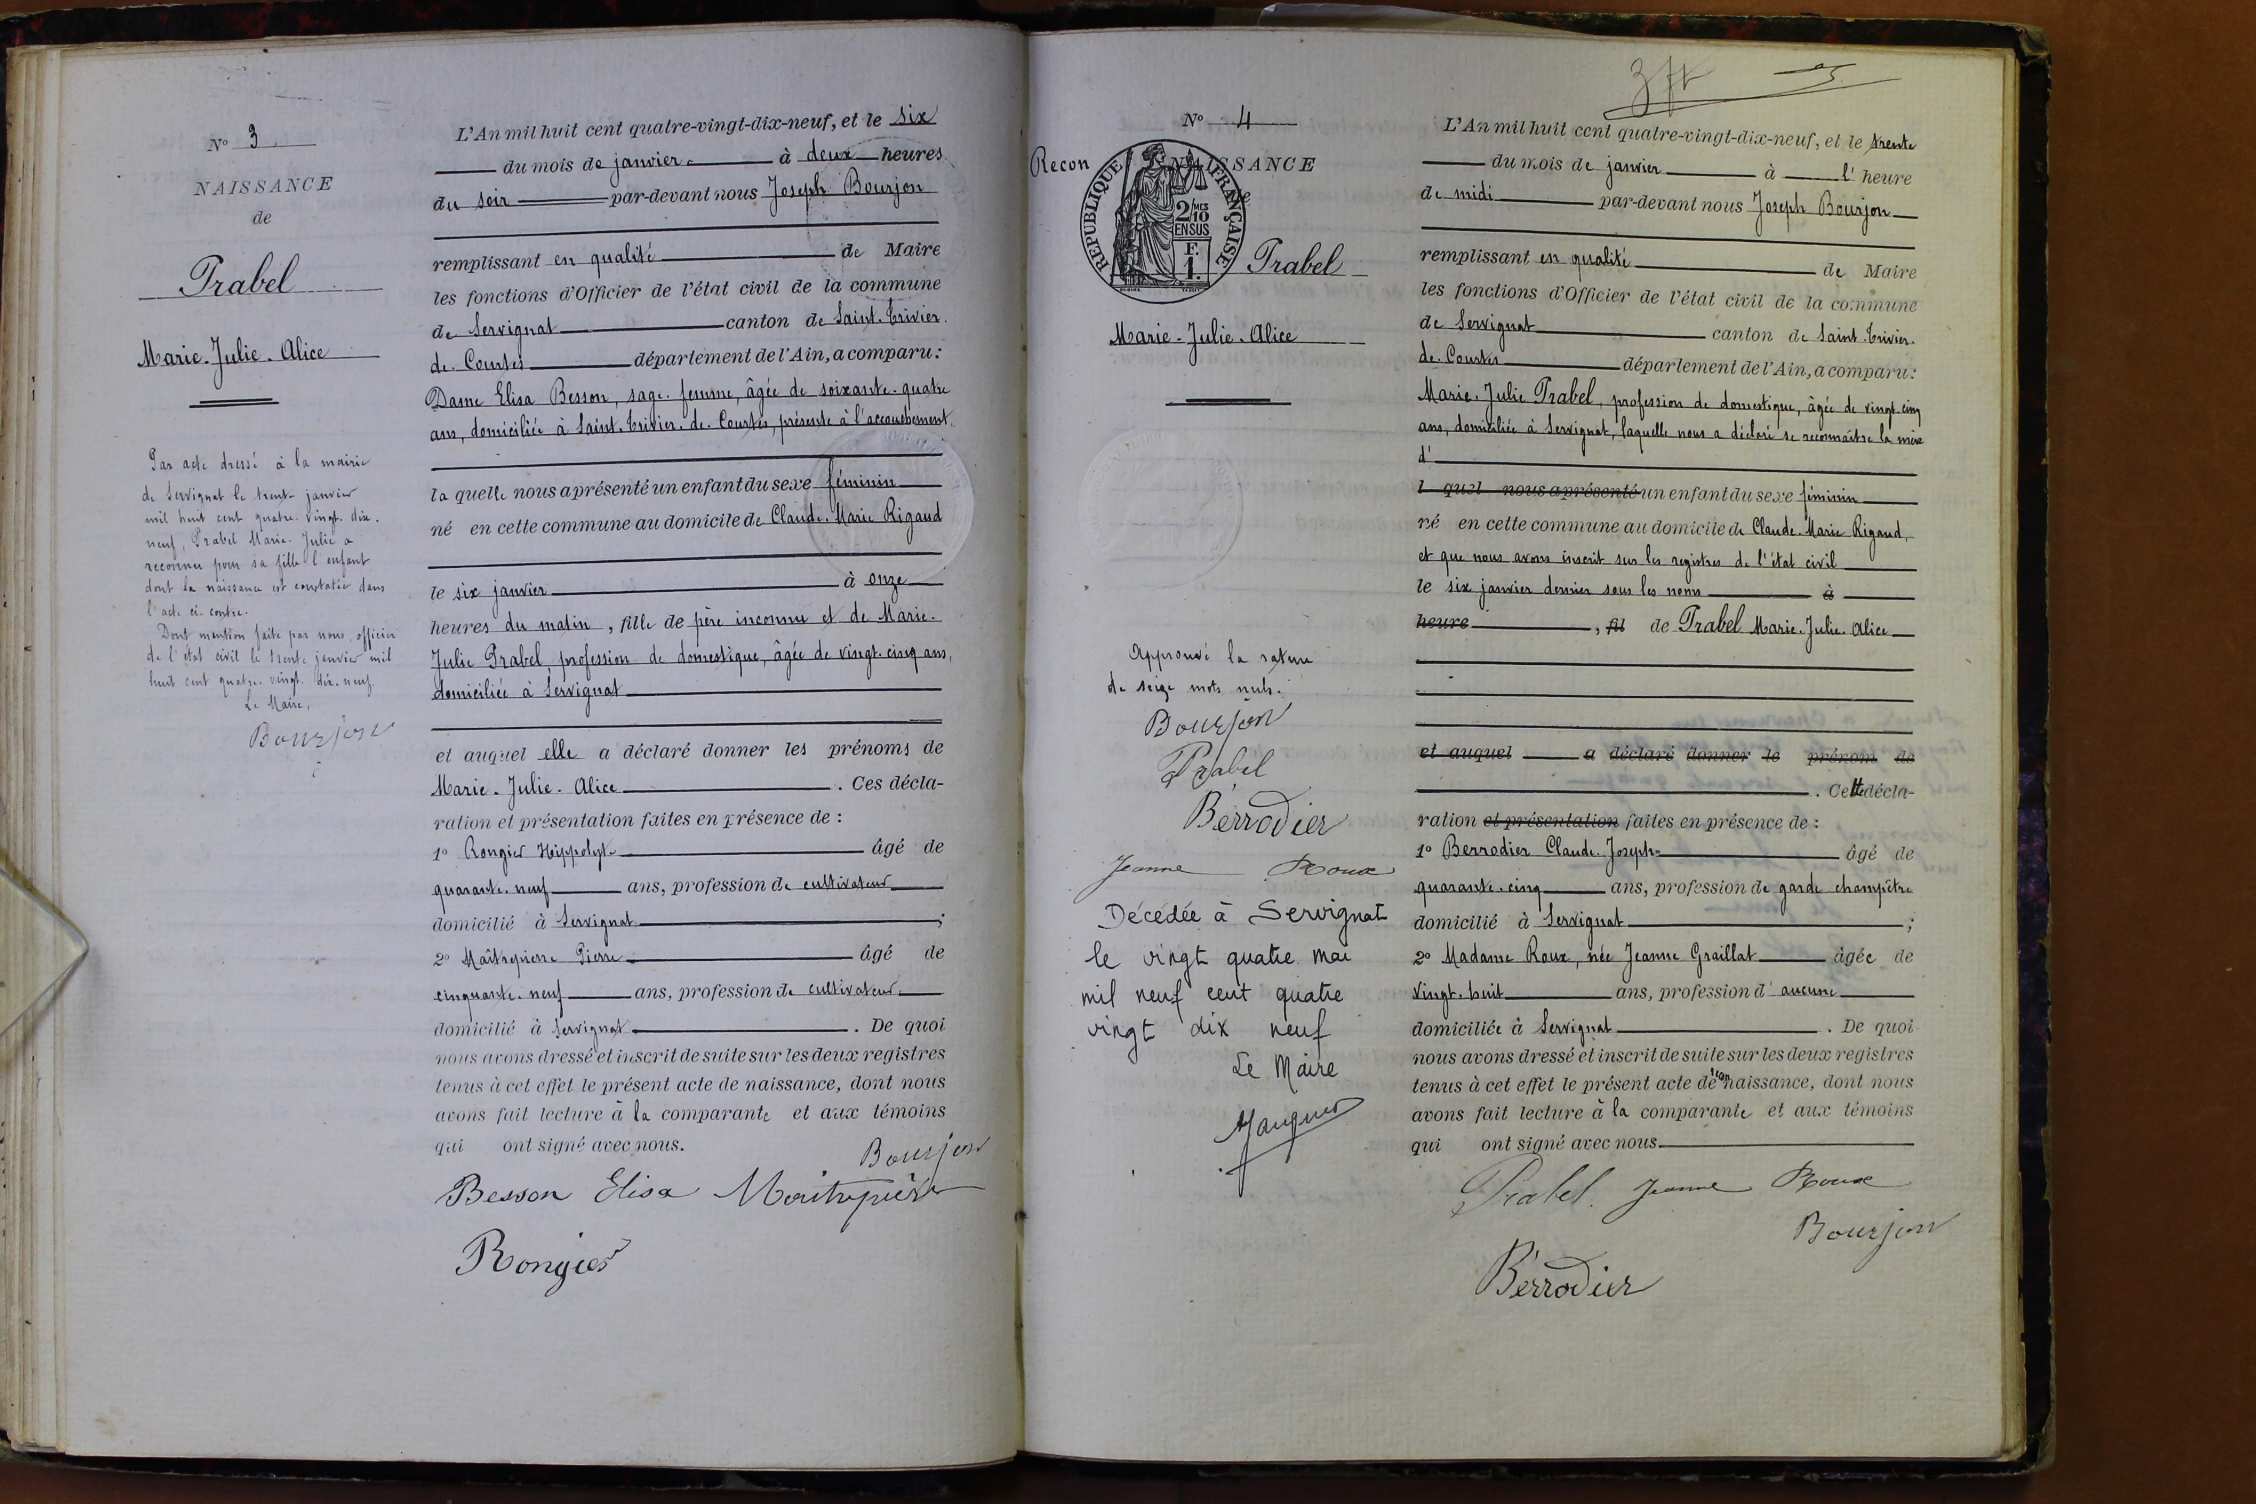 Nº 3
NAISSANCE
de
Prabel
Marie-Julie-Alice
Par acte dressé à la mairie
de Servignat le trente janvier
mil huit cent quatre-vingt-dix-
neuf, Prabel Marie-Julie a
reconnu pour sa fille l'enfant
dont la naissance est constatée dans
l'acte ci-contre.
Dont mention faite par nous, officier
de l'état civil le trente janvier mil
huit cent quatre-vingt-dix-neuf.
Le Maire,
Bourjon
L'An mil huit cent quatre-vingt-dix-neuf, et le six
du mois de janvier à deux heures
du soir par-devant nous Joseph Bourjon
remplissant en qualité de Maire
les fonctions d'Officier de l'état civil de la commune
de Servignat canton de Saint-Trivier-
de-Courtes département de l'Ain, a comparu:
Dame Elisa Besson, sage-femme, âgée de soixante-quatre
ans, domiciliée à Saint-Trivier-de-Courtes, présente à l'accouchement.
la quelle nous a présenté un enfant du sexe féminin
né en cette commune au domicile de Claude-Marie Rigaud
le six janvier à onze
heures du matin, fille de père inconnu et de Marie-
Julie Prabel, profession de domestique, âgée de vingt-cinq ans,
domiciliée à Servignat
et auquel elle a déclaré donner les prénoms de
Marie-Julie-Alice. Ces décla-
ration et présentation faites en présence de :
1º Rongier Hippolyte âgé de
quarante-neuf ans, profession de cultivateur
domicilié à Servignat ;
2º Maîtrepierre Pierre âgé de
cinquante-neuf ans, profession de cultivateur
domicilié à Servignat. De quoi
nous avons dressé et inscrit de suite sur les deux registres
tenus à cet effet le présent acte de naissance, dont nous
avons fait lecture à la comparante et aux témoins
qui ont signé avec nous.
Bourjon
Besson Elisa Maitrepierre
Rongier
Nº 4
Recon NAISSANCE
de
REPUBLIQUE FRANÇAISE
2/10 MES
EN SUS
F.
1.
Prabel
Marie-Julie-Alice
Approuvé la rature
de seize mots nuls.
Bourjon
Prabel
Bérrodier
Jeanne Roux
Décédée à Servignat
le vingt quatre mai
mil neuf cent quatre
vingt dix neuf
Le Maire
L'An mil huit cent quatre-vingt-dix-neuf, et le trente
du mois de janvier à l' heure
de midi par-devant nous Joseph Bourjon
remplissant en qualité de Maire
les fonctions d'Officier de l'état civil de la commune
de Servignat canton de Saint-Trivier-
de-Courtes département de l'Ain, a comparu:
Marie-Julie Prabel, profession de domestique, âgée de vingt-cinq
ans, domiciliée à Servignat, laquelle nous a déclaré se reconnaître la mère
d'
l quel nous a présenté un enfant du sexe féminin
né en cette commune au domicile de Claude-Marie Rigaud,
et que nous avons inscrit sur les registres de l'état civil
le six janvier dernier sous les noms à
heure , fil de Prabel Marie-Julie-Alice
et auquel a déclaré donner le prénom de
. Cette décla-
ration et présentation faites en présence de :
1º Berrodier Claude-Joseph âgé de
quarante-cinq ans, profession de garde champêtre
domicilié à Servignat ;
2º Madame Roux, née Jeanne Graillat âgée de
vingt-huit ans, profession d'aucune
domiciliée à Servignat. De quoi
nous avons dressé et inscrit de suite sur les deux registres
tenus à cet effet le présent acte de reconnaissance, dont nous
avons fait lecture à la comparante et aux témoins
qui ont signé avec nous.
Prabel. Jeanne Roux
Bourjon
Bérrodier